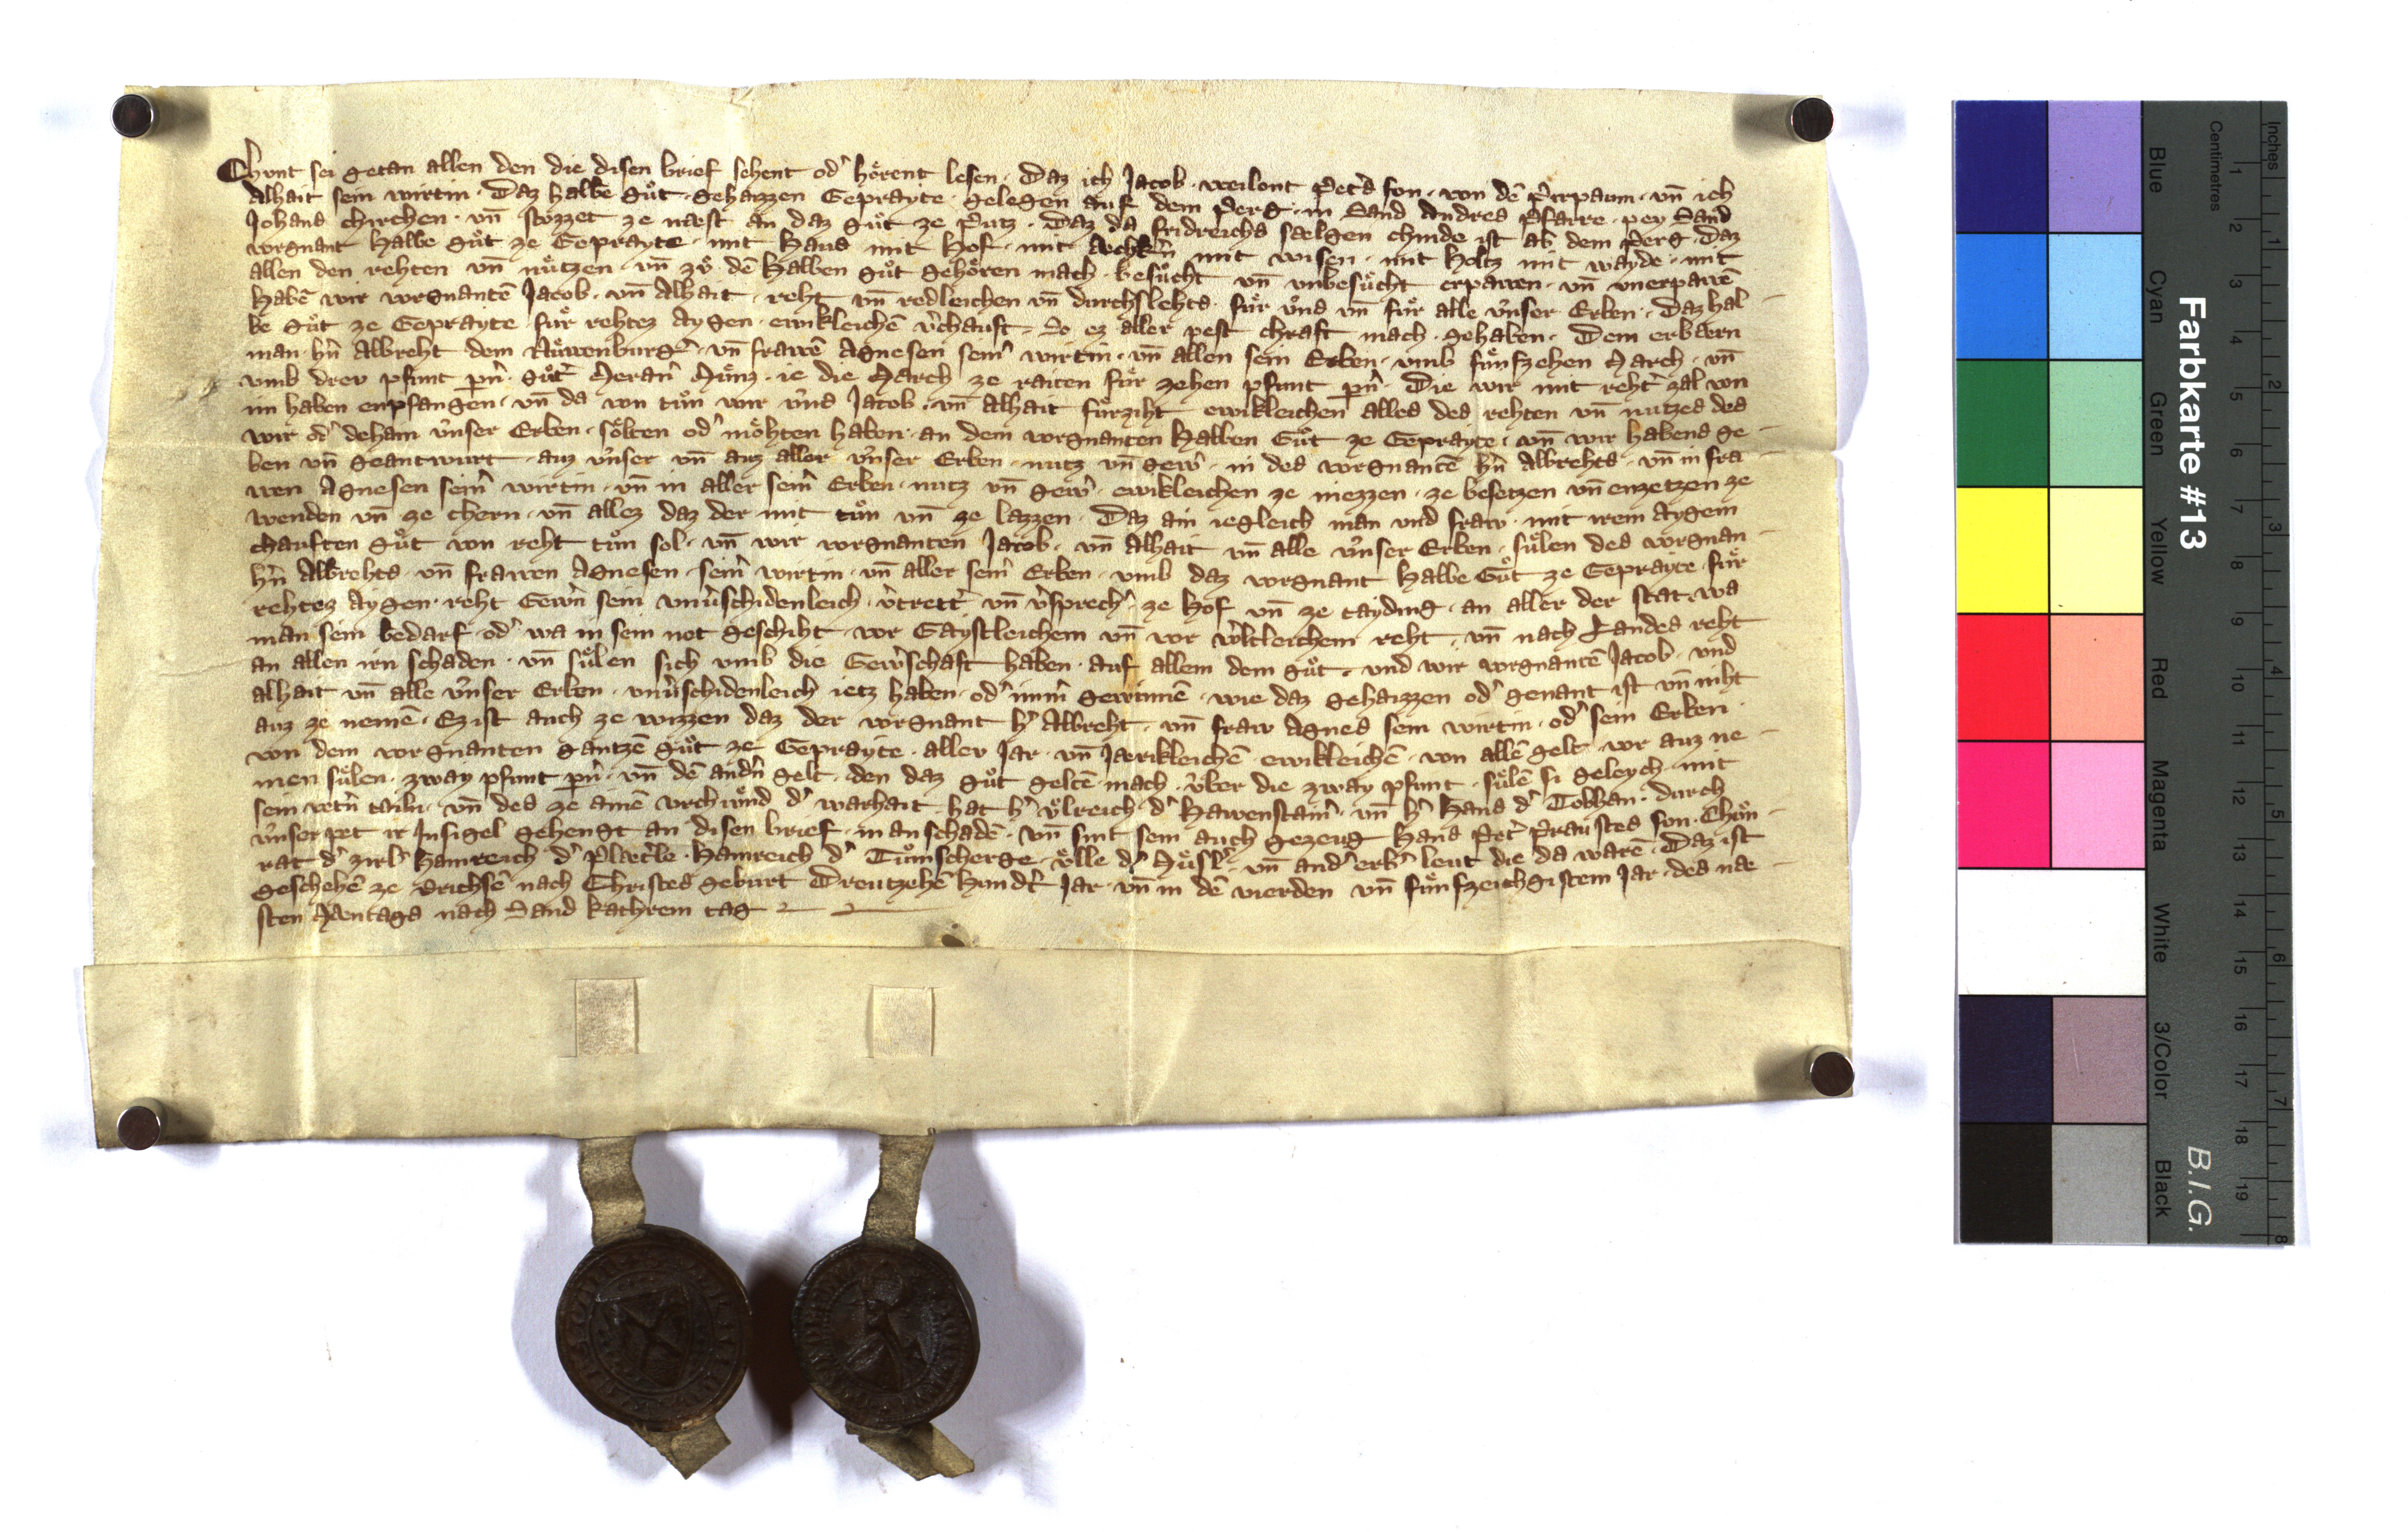 Chunt sei getan allen den die disen brief sehent od' hoͤrent lesen · Daz ich Jacob · weilent Pet's son · von dē Pirpaum · vn̄ ich
Alhait sein wirtin · Daz halbe guͦt · gehaizzen Geprayte · gelegen auf dem Perg · in Sand Andres Pfarre · pey Sand
Johans chirchen · vn̄ stozzet ze naest an daz guͦt ze Putz · Daz da fridreichs saelgen chinde ist ab dem Perg · Daz
vorgnant Halbe guͦt ze Geprayte · mit Haus mit Hof · mit Aechk'n mit wisen · mit Holtz mit wayde · mit
allen den rehten vn̄ nuͤtzen · vn̄ zuͦ dē Halben guͦt gehoͤren mach · besuͦcht vn̄ vnbesuͦcht erpawen · vn̄ vnerpawē
Habē wir vorgnantē Jacob · vn̄ Alhait · reht vn̄ redleichen vn̄ durchslehts · fuͤr vns vn̄ fuͤr alle vnser Erben · Daz hal-
be guͦt ze Geprayte fuͤr rehtez Aygen · ewikleichē v'chauft · So ez aller pest chraft mach · gehaben · Dem erbaern
man · h'n Albreht dem Nuͤwenburg' · vn̄ frawē Agnesen sein' wirtin · vn̄ allen sein Erben · vmb fuͤnfzehen March · vn̄
vmb drev pfunt pn̄ · guͦt' Meran' Muͤnz · ie die March ze raiten fuͤr zehen pfunt pn̄ · Die wir mit reht' zal von
im haben enpfangen · vn̄ da von tuͦn wir vns Jacob · vn̄ Alhait fuͤrziht ewikleichen alles des rehten vn̄ nutzes des
wir od' dehain vnser Erben · soͤlten od' moͤhten haben · an dem vorgnanten Halben Guͦt ze Geprayte · vn̄ wir habens ge-
ben vn̄ geantwurt · auz vnser vn̄ auz aller vnser Erben · nutz vn̄ gew' · in des vorgnantē h'n Albrehts · vn̄ in fra-
wen Agnesen sein' wirtin · vn̄ in aller sein' Erben · nutz vn̄ gew' · ewikleichen ze niezzen · ze besetzen vn̄ enzetzen ze
wenden vn̄ ze chern · vn̄ allez daz der mit tuͦn vn̄ ze lazzen · Daz ain iegleich man vnd fraw · mit irem Aygem
chauften guͦt von reht tuͦn sol · vn̄ wir vorgnanten Jacob · vn̄ Alhait vn̄ alle vnser Erben · suͤlen des vorgnan-
h'n Albrehts · vn̄ frawen Agnesen · sein' wirtin · vn̄ aller sein' Erben · vmb daz vorgnant Halbe Guͦt ze Geprayte · fuͤr
rehtez Aygen · reht Gew'n sein vnu'schidenleich · v'trett' vn̄ v'sprech' · ze Hof vn̄ ze tayding · an aller der stat · wa
man sein bedarf · od' wa in sein not geschiht · vor Gaystleichem vn̄ vor w'ltleichem reht · vn̄ nach Landes reht
an allen irn schaden · vn̄ suͤlen sich vmb die Gew'schaft haben · auf allem dem guͦt · vnd wir vorgnantē Jacob · vnd
alhait vn̄ alle vnser Erben · vnu'schidenleich ietz haben · od' imm' gewinnē · wie daz gehaizzen od' genant ist vn̄ niht
auz ze nemē · Ez ist auch ze wizzen daz der vorgnant h' Albreht · vn̄ fraw Agnes sein wirtin · od' sein Erben ·
von dem vorgnanten gantzē guͦt ze Geprayte · aller Jar · vn̄ Jaerikleichē ewikleichē · von allē gelt · vor auz ne-
men suͤlen · zway pfunt pn̄ · vn̄ dē and'n gelt · den daz guͦt geltē mach · vber die zway pfunt · suͤlē si geleych · mit
sein tailn · vn̄ des ze ainē vrchuͤnd d' warhait hat h' Vͦlreich · d' Hawenstain' · vn̄ h' Hans d' Tobhan · durch
vnser pet ir Insigel gehengt an disen brief · in an schadē · vn̄ sint sein auch gezeug Hans Pet' Praustes son · Chuͦn-
rat d' zirl' Hainreich d' Plaet'le · Hainreich d' Tuͦmscherge · Voͤlle d' Muͤsl' · vn̄ and' erb' leut die da warē · Daz ist
geschehē ze Brichsē nach Christes geburt Dreutzehē Hund't Jar · vn̄ in dē vierden vn̄ fuͤnfzeichgistem Jar · des nae-
sten Maentags nach Sand kathrein tag
Farbkarte #13
B.I.G.
Centimetres
Inches
Blue
Cyan
Green
Yellow
Red
Magenta
White
3/Color
Black
1 2 3 4 5 6 7 8 9 10 11 12 13 14 15 16 17 18 19
1 2 3 4 5 6 7 8